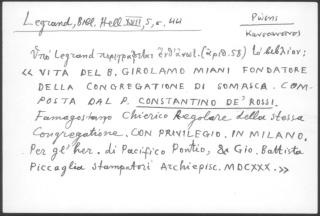 Legrand, Bibl. Hell. XVII, 5, σ. 44
Ρώσης
Κωνσταντῖνος
Ὑπὸ Legrand περιγράφεται ἐνθ' ἀνωτ. (ἀριθ. 58) τὸ βιβλίον:
« VITA DEL B. GIROLAMO MIANI FONDATORE
DELLA CONGREGATIONE DI SOMASCA. COM-
POSTA DAL P. CONSTANTINO DE' ROSSI.
Famagostano Chierico Regolare della stessa
Congregatione. CON PRIVILEGIO. IN MILANO,
Per gl' her. di Pacifico Pontio, & Gio. Battista
Piccaglia stampatori Archiepisc. MDCXXX. »